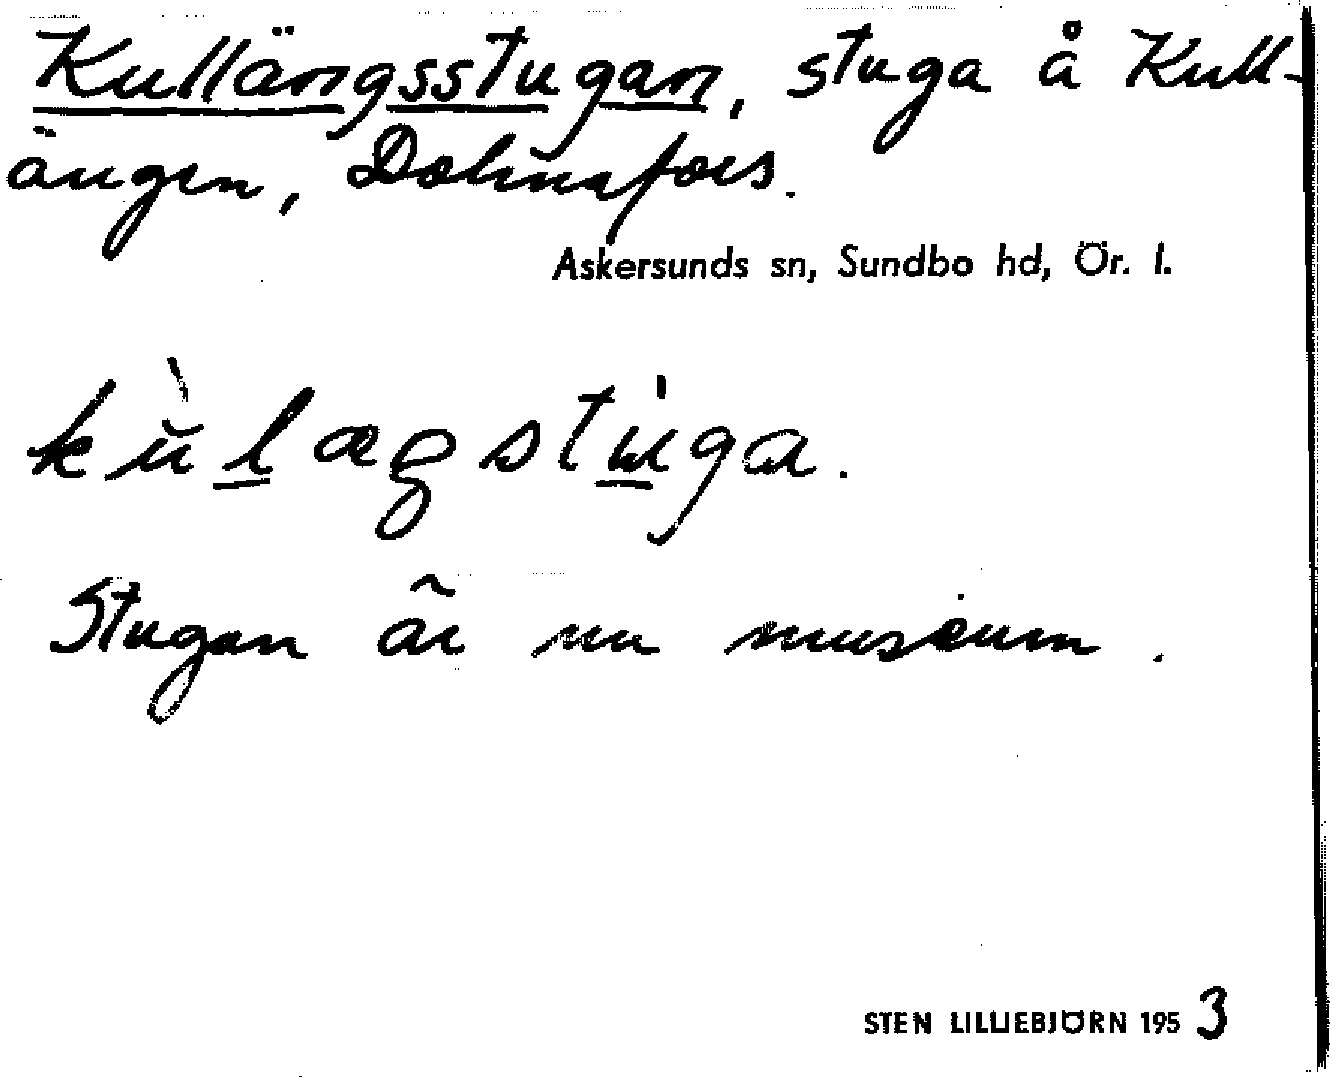 Kullängsstugan, stuga å Kull-
ängen, Dohnafors.
Askersunds sn, Sundbo hd, Ör. l.
kùlægstúga.
Stugan är nu museum.
STEN LILLIEBJÖRN 1953